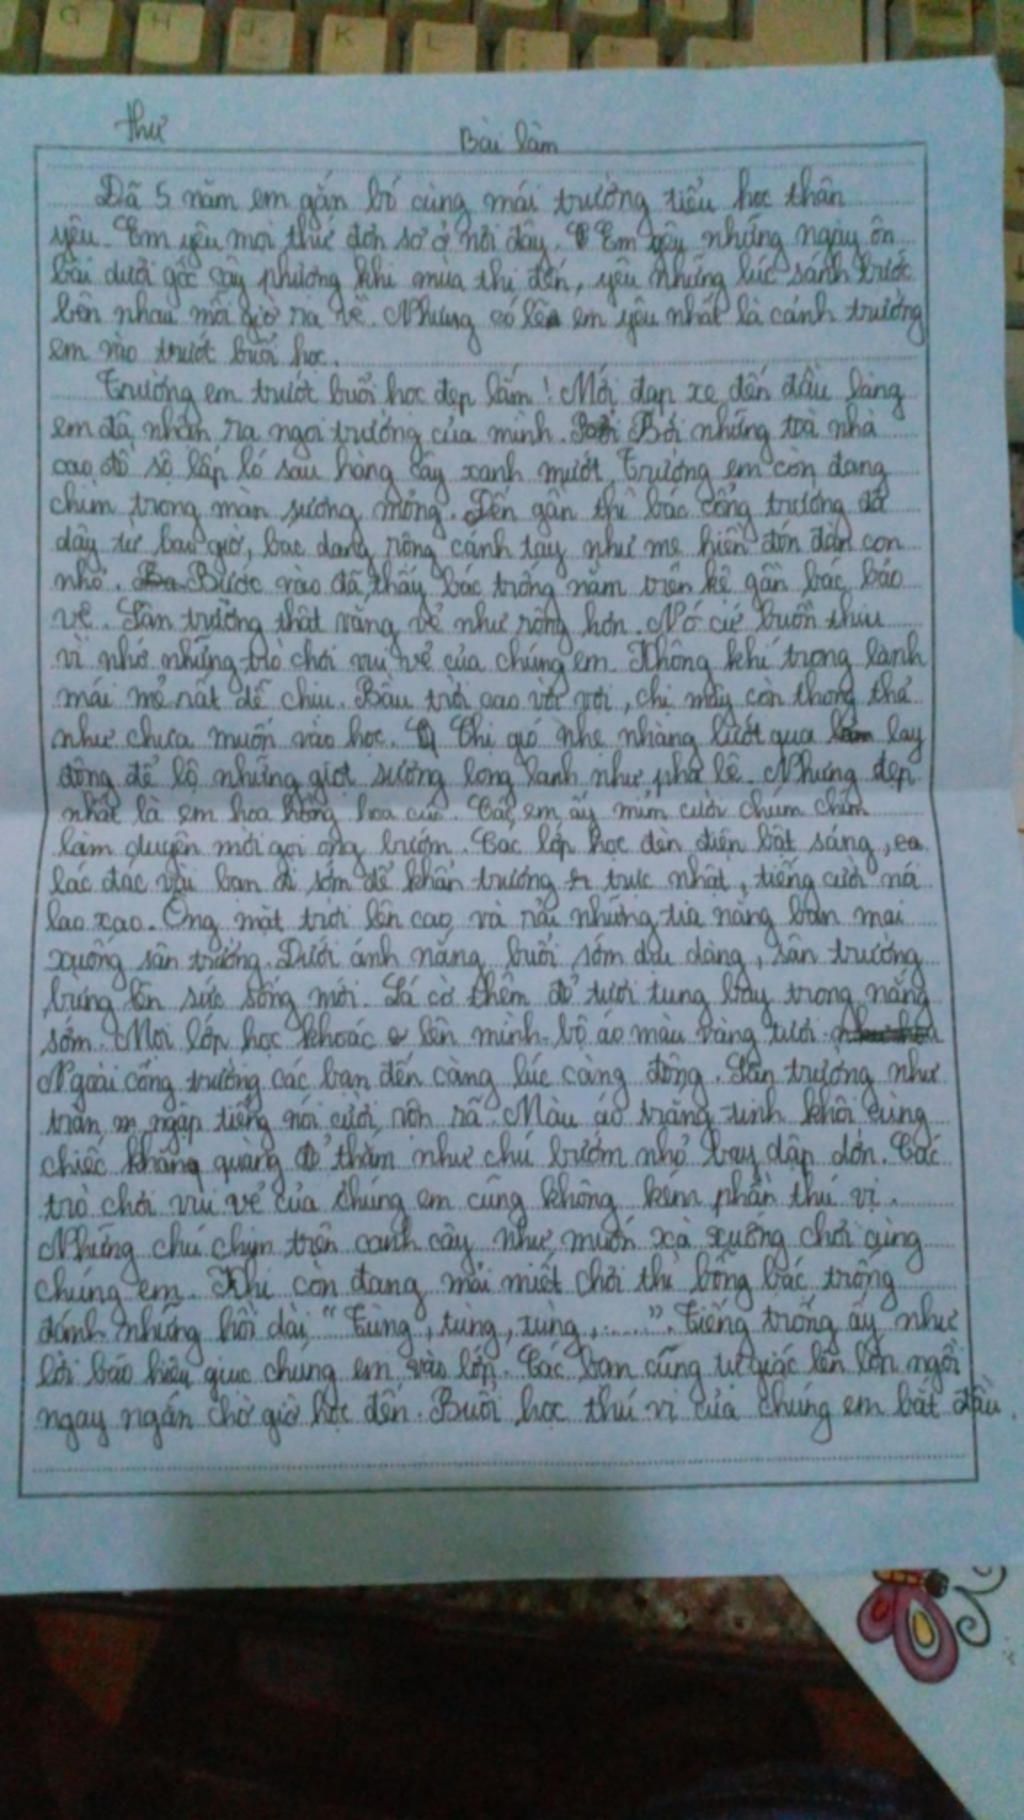 Thư
Bài làm
Đã 5 năm em gắn bó cùng mái trường tiểu học thân
yêu. Em yêu mọi thứ đơn sơ ở nơi đây. Em yêu những ngày ôn
bài dưới gốc cây phượng khi mùa thi đến, yêu những lúc sánh bước
bên nhau mỗi giờ ra về. Nhưng có lẽ em yêu nhất là cảnh trường
em vào trướt buổi học.
Trường em trướt buổi học đẹp lắm! Mới đạp xe đến đầu làng
em đã nhận ra ngôi trường của mình. Bởi những toà nhà
cao đồ sộ lấp ló sau hàng cây xanh mướt. Trường em còn đang
chìm trong màn sương mỏng. Đến gần thì bác cổng trường đã
dậy từ bao giờ, bác dang rộng cánh tay như mẹ hiền đón đàn con
nhỏ. Bước vào đã thấy bác trống nằm trên kệ gần bác bảo
vệ. Sân trường thật vắng vẻ như rộng hơn. Nó cứ buồn thiu
vì nhớ những trò chơi vui vẻ của chúng em. Không khí trong lành
mái mẻ rất dễ chịu. Bầu trời cao vời vợi, chị mây còn thong thả
như chưa muốn vào học. Chị gió nhẹ nhàng lướt qua lay
động để lộ những giọt sương long lanh như pha lê. Nhưng đẹp
nhất là em hoa hồng hoa cúc. Các em ấy mỉm cười chúm chím
làm duyên mời gọi ong bướm. Các lớp học đèn điện bật sáng,
lác đác vài bạn đi sớm để khẩn trương trực nhật, tiếng cười nói
lao xao. Ông mặt trời lên cao và rải những tia nắng ban mai
xuống sân trường. Dưới ánh nắng buổi sớm dịu dàng, sân trường
bừng lên sức sống mới. Lá cờ thêm đỏ tươi tung bay trong nắng
sớm. Mọi lớp học khoác lên mình bộ áo màu vàng tươi.
Ngoài cổng trường các bạn đến càng lúc càng đông. Sân trường như
tràn ngập tiếng nói cười rôn rã. Màu áo trắng tinh khôi cùng
chiếc khăng quàng đỏ thắm như chú bướm nhỏ bay dập dờn. Các
trò chơi vui vẻ của chúng em cũng không kém phần thú vị.
Những chú chim trên cành cây như muốn xà xuống chơi cùng
chúng em. Khi còn đang mải miết chơi thì bỗng bác trống
đánh những hồi dài "Tùng, tùng, tùng,......". Tiếng trống ấy như
lời báo hiệu giục chúng em vào lớp. Các bạn cũng tự giác lên lớp ngồi
ngay ngắn chờ giờ học đến. Buổi học thú vị của chúng em bắt đầu.